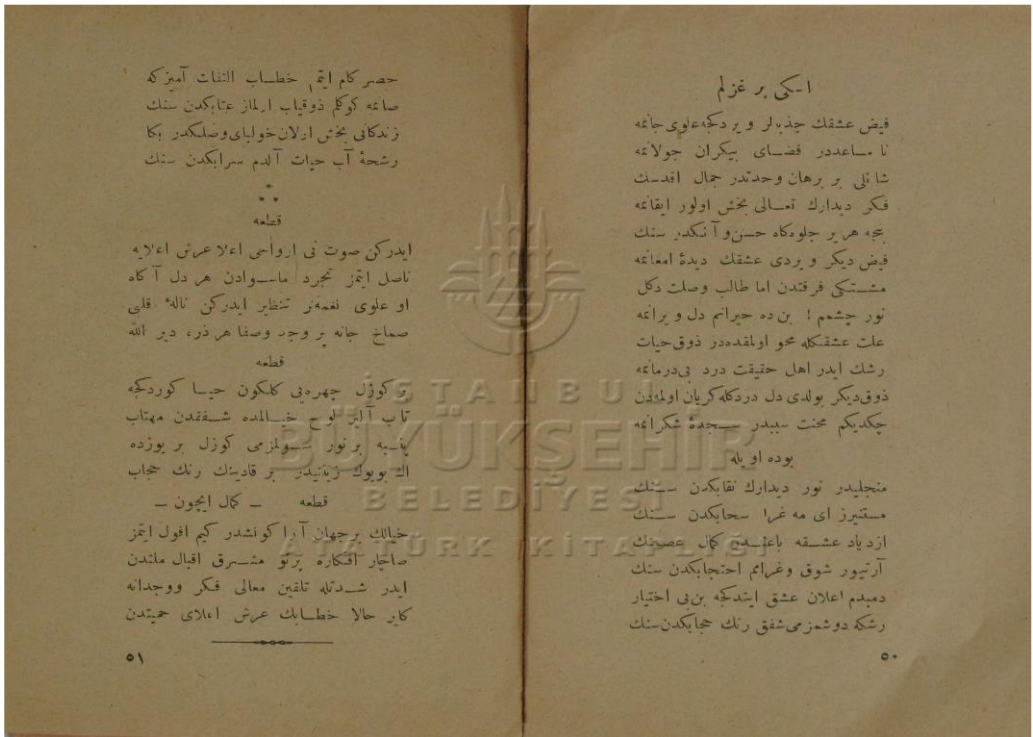 اسكی بر غزلم
فیض عشقك جذبه‌لر ویردكجه علوی جانمه
نامساعددر فضای بیكران جولانمه
شانلی بر برهان وحدتدر جمال اقدسك
فكر دیدارك تعالی بخش اولور ایقانمه
بجه هریر جلوه‌كاه حسن و آنكدر سنك
فیض دیكر ویردی عشقك دیدهٔ امعانمه
مشتكی فرقتدن اما طالب وصلت دكل
نور چشمم! بن ده حیرانم دل ویرانمه
علت عشقكله محو اولمقده‌در ذوق حیات
رشك ایدر اهل حقیقت درد بی‌درمانمه
ذوق دیكر بولدی دل دردكله كریان اولمه‌دن
چكدیكم محنت سببدر سجدهٔ شكرانمه
بوده اویله
منجلیدر نور دیدارك نقابكدن سنك
مستنیرز ای مه غرا سحابكدن سنك
ازدیاد عشقه باعثدن كمال عصمتك
آرتیور شوق وغرامم احتجابكدن سنك
دمبدم اعلان عشق ایتدكجه بن بی اختیار
رشكه دوشمزمی شفق رنك حجابكدن سنك
٥٠
حصر كام ایتم خطاب التفات آمیزكه
صانمه كوكلم ذوقیاب اولماز عتابكدن سنك
زندكانی بخش اولان خولیای وصلكدر بكا
رشحهٔ آب حیات آلدم سرابكدن سنك
***
قطعه
ایدركن صوت نی ارواحی اعلا عرش اعلایه
ناصل ایتمز تجرد ماسوادن هر دل آكاه
او علوی نغمه‌لر تنظیر ایدركن نالهٔ قلبی
صماخ جانه پر وجد وصفا هر ذره دیر الله
قطعه
بو كوزل چهره‌یی كلكون حیا كوردكجه
تاب آلیر لوح خیالمده شفقدن مهتاب
پنبه بر نور سولمزمی كوزل بر یوزده
اك بویوك زینتیدر بر قادینك رنك حجاب
قطعه ـ كمال ایچون ـ
خیالك بر جهان آرا كونشدر كیم افول ایتمز
صاچار افكاره پرتو مشرق اقبال ملتدن
ایدر شدتله تلقین معالی فكر ووجدانه
كلیر حالا خطابك عرش اعلای حمیتدن
٥١
İSTANBUL
BÜYÜKŞEHİR
BELEDİYESİ
ATATÜRK KİTAPLIĞI